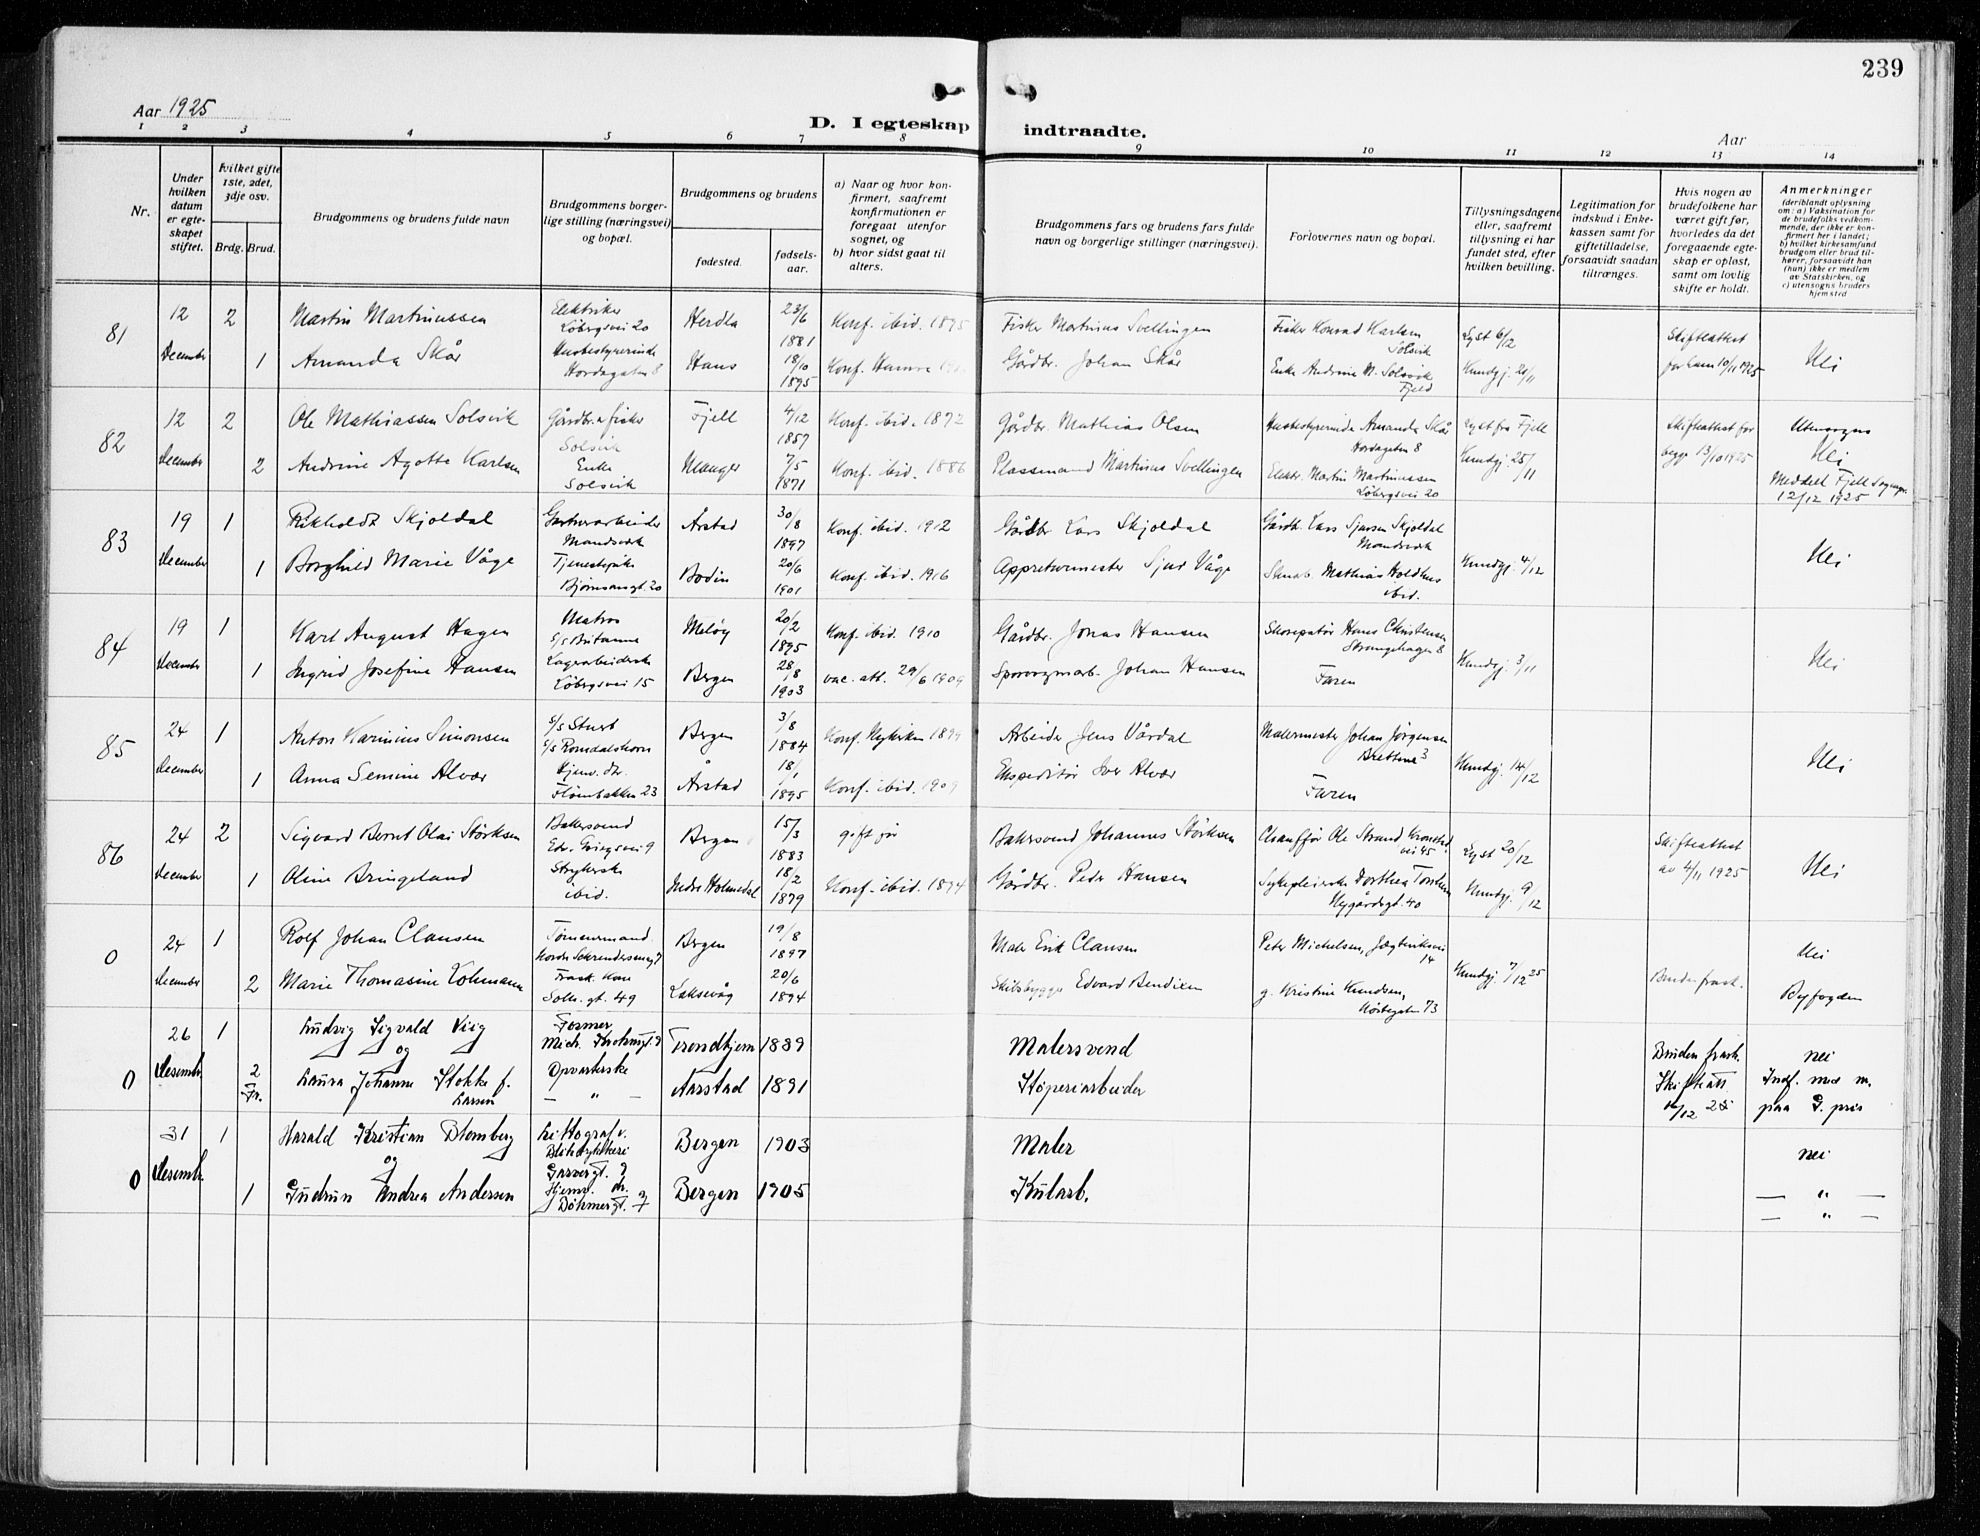 239
Aar 1925
D. I egteskap indtraadte.
Aar
1 2 3 4 5 6 7 8 9 10 11 12 13 14
Nr.
Under hvilken datum er egteskapet stiftet.
Hvilket gifte 1ste, 2det, 3dje osv.
Brdg. Brud.
Brudgommens og brudens fulde navn
Brudgommens borgerlige stilling (næringsvei) og bopæl.
Brudgommens og brudens
fødested.
fødselsaar.
a) Naar og hvor konfirmert, saafremt konfirmationen er foregaat utenfor sognet, og
b) hvor sidst gaat til alters.
Brudgommens fars og brudens fars fulde navn og borgerlige stillinger (næringsvei).
Forlovernes navn og bopæl.
Tillysningsdagene eller, saafremt tillysning ei har fundet sted, efter hvilken bevilling.
Legitimation for indskud i Enkekassen samt for giftetilladelse, forsaavidt saadan tiltrænges.
Hvis nogen av brudefolkene har været gift før, hvorledes da det foregaaende egteskap er opløst, samt om lovlig skifte er holdt.
Anmerkninger (deriblandt oplysning om: a) Vaksination for de brudefolks vedkommende, der ikke er konfirmert her i landet; b) hvilket kirkesamfund brudgom eller brud tilhører, forsaavidt han (hun) ikke er medlem av Statskirken, og c) utensogns bruders hjemsted
81 12 December 2 Martin Martinussen Elektriker Løbergsvei 20 Herdla 23/6 1881 Konf. ibid. 1895 Fisker Martinus Svellingen Fisker Konrad Karlsen Solsvik Lyst 6/12 Skifteattest for ham 10/11 1925 Nei
1 Amanda Skår Husbestyrerinde Hordagaten 8 Haus 18/10 1895 Konf. Hamre Gårdbr. Johan Skår Enke Andrine M. Solsvik Fjeld Kundgj. 20/11
82 12 December 2 Ole Mathiassen Solsvik Gårdbr. & fisker Solsvik Fjell 4/12 1857 Konf. ibid. 1872 Gårdbr. Mathias Olsen Husbestyrerinde Amanda Skår Hordagaten 8 Lyst fra Fjell Skifteattest for begge 13/10 1925 Utensogns Nei
2 Andrine Agotte Karlsen Enke Solsvik Manger 7/5 1871 Konf. ibid. 1886 Plassmand Martinus Svellingen Elektr. Martin Martinussen Løbergsvei 20 Kundgj. 25/11 Meddelt Fjell sogn 12/12 1925
83 19 December 1 Rikholdt Skjoldal Gartnerarbeider Mandsverk Årstad 30/8 1897 Konf. ibid. 1912 Gårdbr. Lars Skjoldal Gårdb. Lars Sjursen Skjoldal Mandsverk Kundgj. 4/12 Nei
1 Borghild Marie Våge Tjenestepike Bjørnsonsgt. 20 Bodin 20/6 1901 Konf. ibid. 1916 Appreturmester Sjur Våge Mathias Holdhus ibid.
84 19 December 1 Karl August Hagen Matros s/s Britannic Meløy 20/2 1895 Konf. ibid. 1910 Gårdbr. Jonas Hansen Skoreparatør Hans Christensen Strangehagen 8 Kundgj. 3/11 Nei
1 Ingrid Josefine Hansen Lagerarbeiderske Løbergsvei 15 Bergen 28/8 1903 vac. att. 29/6 1909 Sporvognarb. Johan Hansen Faren
85 24 December 1 Anton Marinius Simonsen s/s Stuert s/s Romdalshorn Bergen 3/8 1884 Konf. Nykirken Arbeider Jens Vårdal Malermester Johan Jørgensen Kundgj. 14/12 Nei
1 Anna Semine Alvær Hjemv. dtr. Fløenbakken 23 Årstad 18/1 1895 Konf. ibid. 1909 Ekspeditør Iver Alvær Faren
86 24 December 2 Sigvard Bernt Olai Størksen Bakersvend Edv. Griegsvei 9 Bergen 15/3 1883 gift før Bakersvend Johannes Størksen Chauffør Ole Strand Kronstadvei 45 Lyst 20/12 Skifteattest av 4/11 1925 Nei
1 Oline Bringeland Strykerske ibid. Indre Holmedal 18/2 1879 Konf. ibid. 1894 Gårdbr. Peder Hansen Sykepleierske Dorthea Nygårdsgt. 40 Kundgj. 9/12
0 24 December 1 Rolf Johan Clausen Tømmermand Bergen 19/8 1897 Maler Erik Clausen Peter Michelsen, 14 Kundgj. 7/12 25 Nei
2 Marie Thomasine Lohmann Frask. Kone Solh. gt. 49 Laksevåg 20/6 1894 Skibsbygger Edvard Bendixen g. Kristine Knudsen, 73 Bruden frask. Byfogden
0 26 Desembr. 1 Ludvig Sigvald Viig Former Mich. Krohnsgt. Trondhjem 1889 Malersvend Bruden frask. nei
og
2 Fr. Laura Johanne Stokke f. Larsen Opvarterske — " — Aarstad 1891 Støperiarbeider Skifteatt. 16/12 25 Indf. med m. paa S. pris
0 31 Desembr. 1 Harald Kristian Blomberg Littograf v. Bergen 1903 Maler nei
og
1 Gudrun Andrea Andersen Hjemv. dt. Bøhmergt. 7 Bergen 1905 Kularb. — " —
— " —